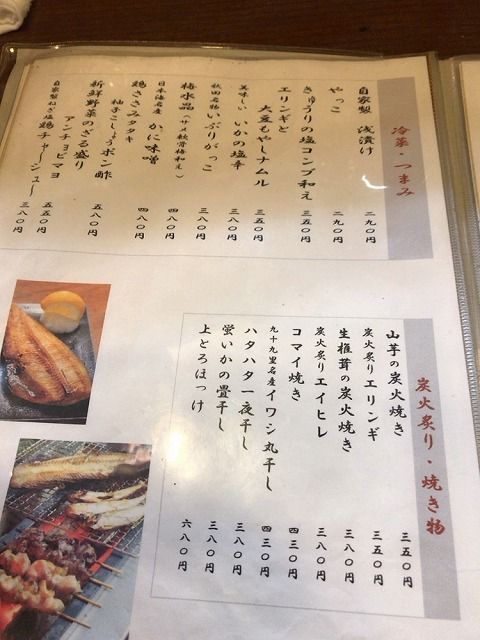 冷菜・つまみ
自家製 浅漬け 二九〇円
やっこ 二九〇円
きゅうりの塩コンブ和え 三五〇円
エリンギと
大豆もやしナムル 三五〇円
美味しい いかの塩辛 三八〇円
秋田名物 いぶりがっこ 三八〇円
梅水晶(サメ軟骨梅和え) 四八〇円
日本海名産 かに味噌 四八〇円
鶏ささみタタキ
柚子こしょうポン酢 四八〇円
新鮮野菜のざる盛り
アンチョビマヨ 五八〇円
自家製ねぎ塩鶏チャーシュー 五五〇円
三八〇円
炭火炙り・焼き物
山芋の炭火焼き 三五〇円
炭火炙りエリンギ 三五〇円
生椎茸の炭火焼き 三八〇円
炭火炙りエイヒレ 三八〇円
コマイ焼き 四三〇円
九十九里名産イワシ丸干し 四三〇円
ハタハタ一夜干し 三八〇円
蛍いかの畳干し 三八〇円
上とろほっけ 六八〇円